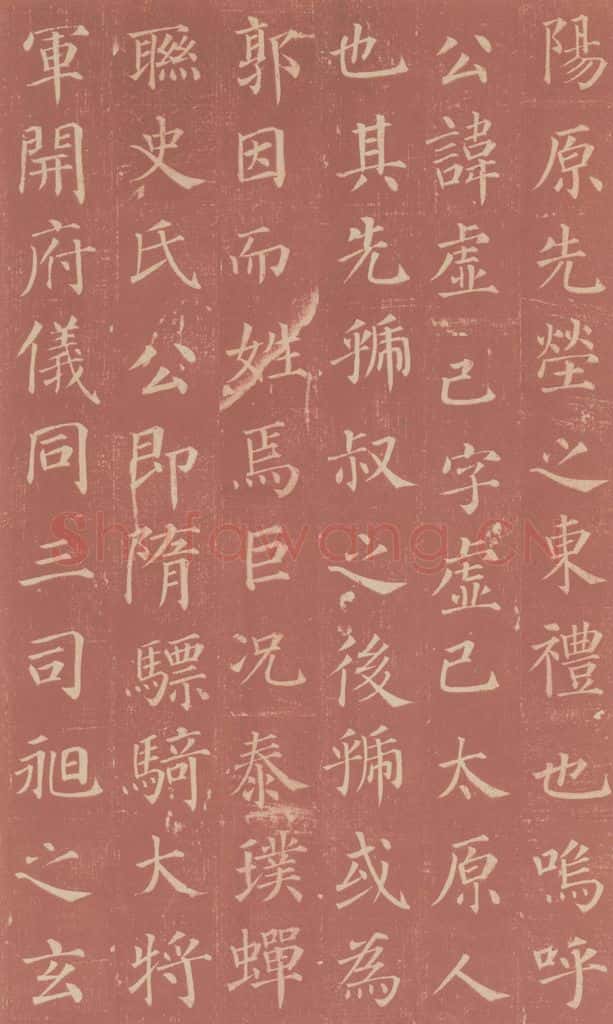 陽原先塋之東禮也嗚呼
公諱虛己字虛己太原人
也其先虢叔之後虢或為
郭因而姓焉巨况泰璞蟬
聯史氏公即隋驃騎大将
軍開府儀同三司昶之玄
Shufawang.CN